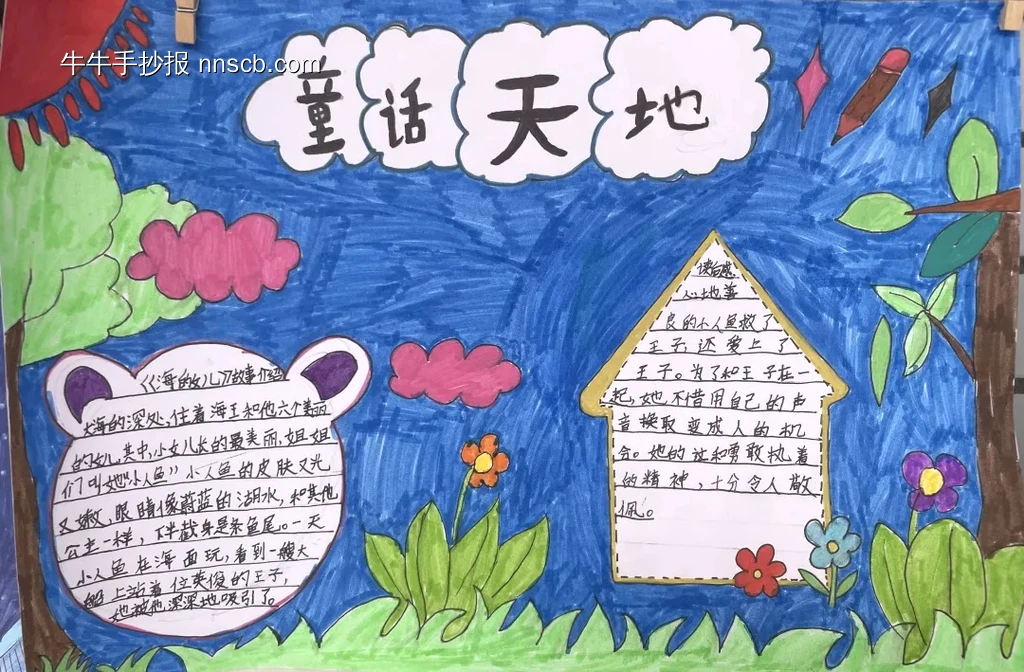 牛牛手抄报 nnscb.com
童话天地
《海的女儿》故事介绍
海的深处,住着海王和他六个美丽
的女儿,其中,小女儿长的最美丽,姐姐
们叫她“小人鱼”小人鱼的皮肤又光
又嫩,眼睛像蔚蓝的湖水,和其他
公主一样,下半截身是条鱼尾。一天
小人鱼在海面玩,看到一艘大
船上站着位英俊的王子,
她被他深深地吸引了。
读后感
心地善
良的小人鱼救了
王子,还爱上了
王子。为了和王子在一
起,她不惜用自己的声
音换取变成人的机
会。她的 和勇敢执着
的精神,十分令人敬
佩。